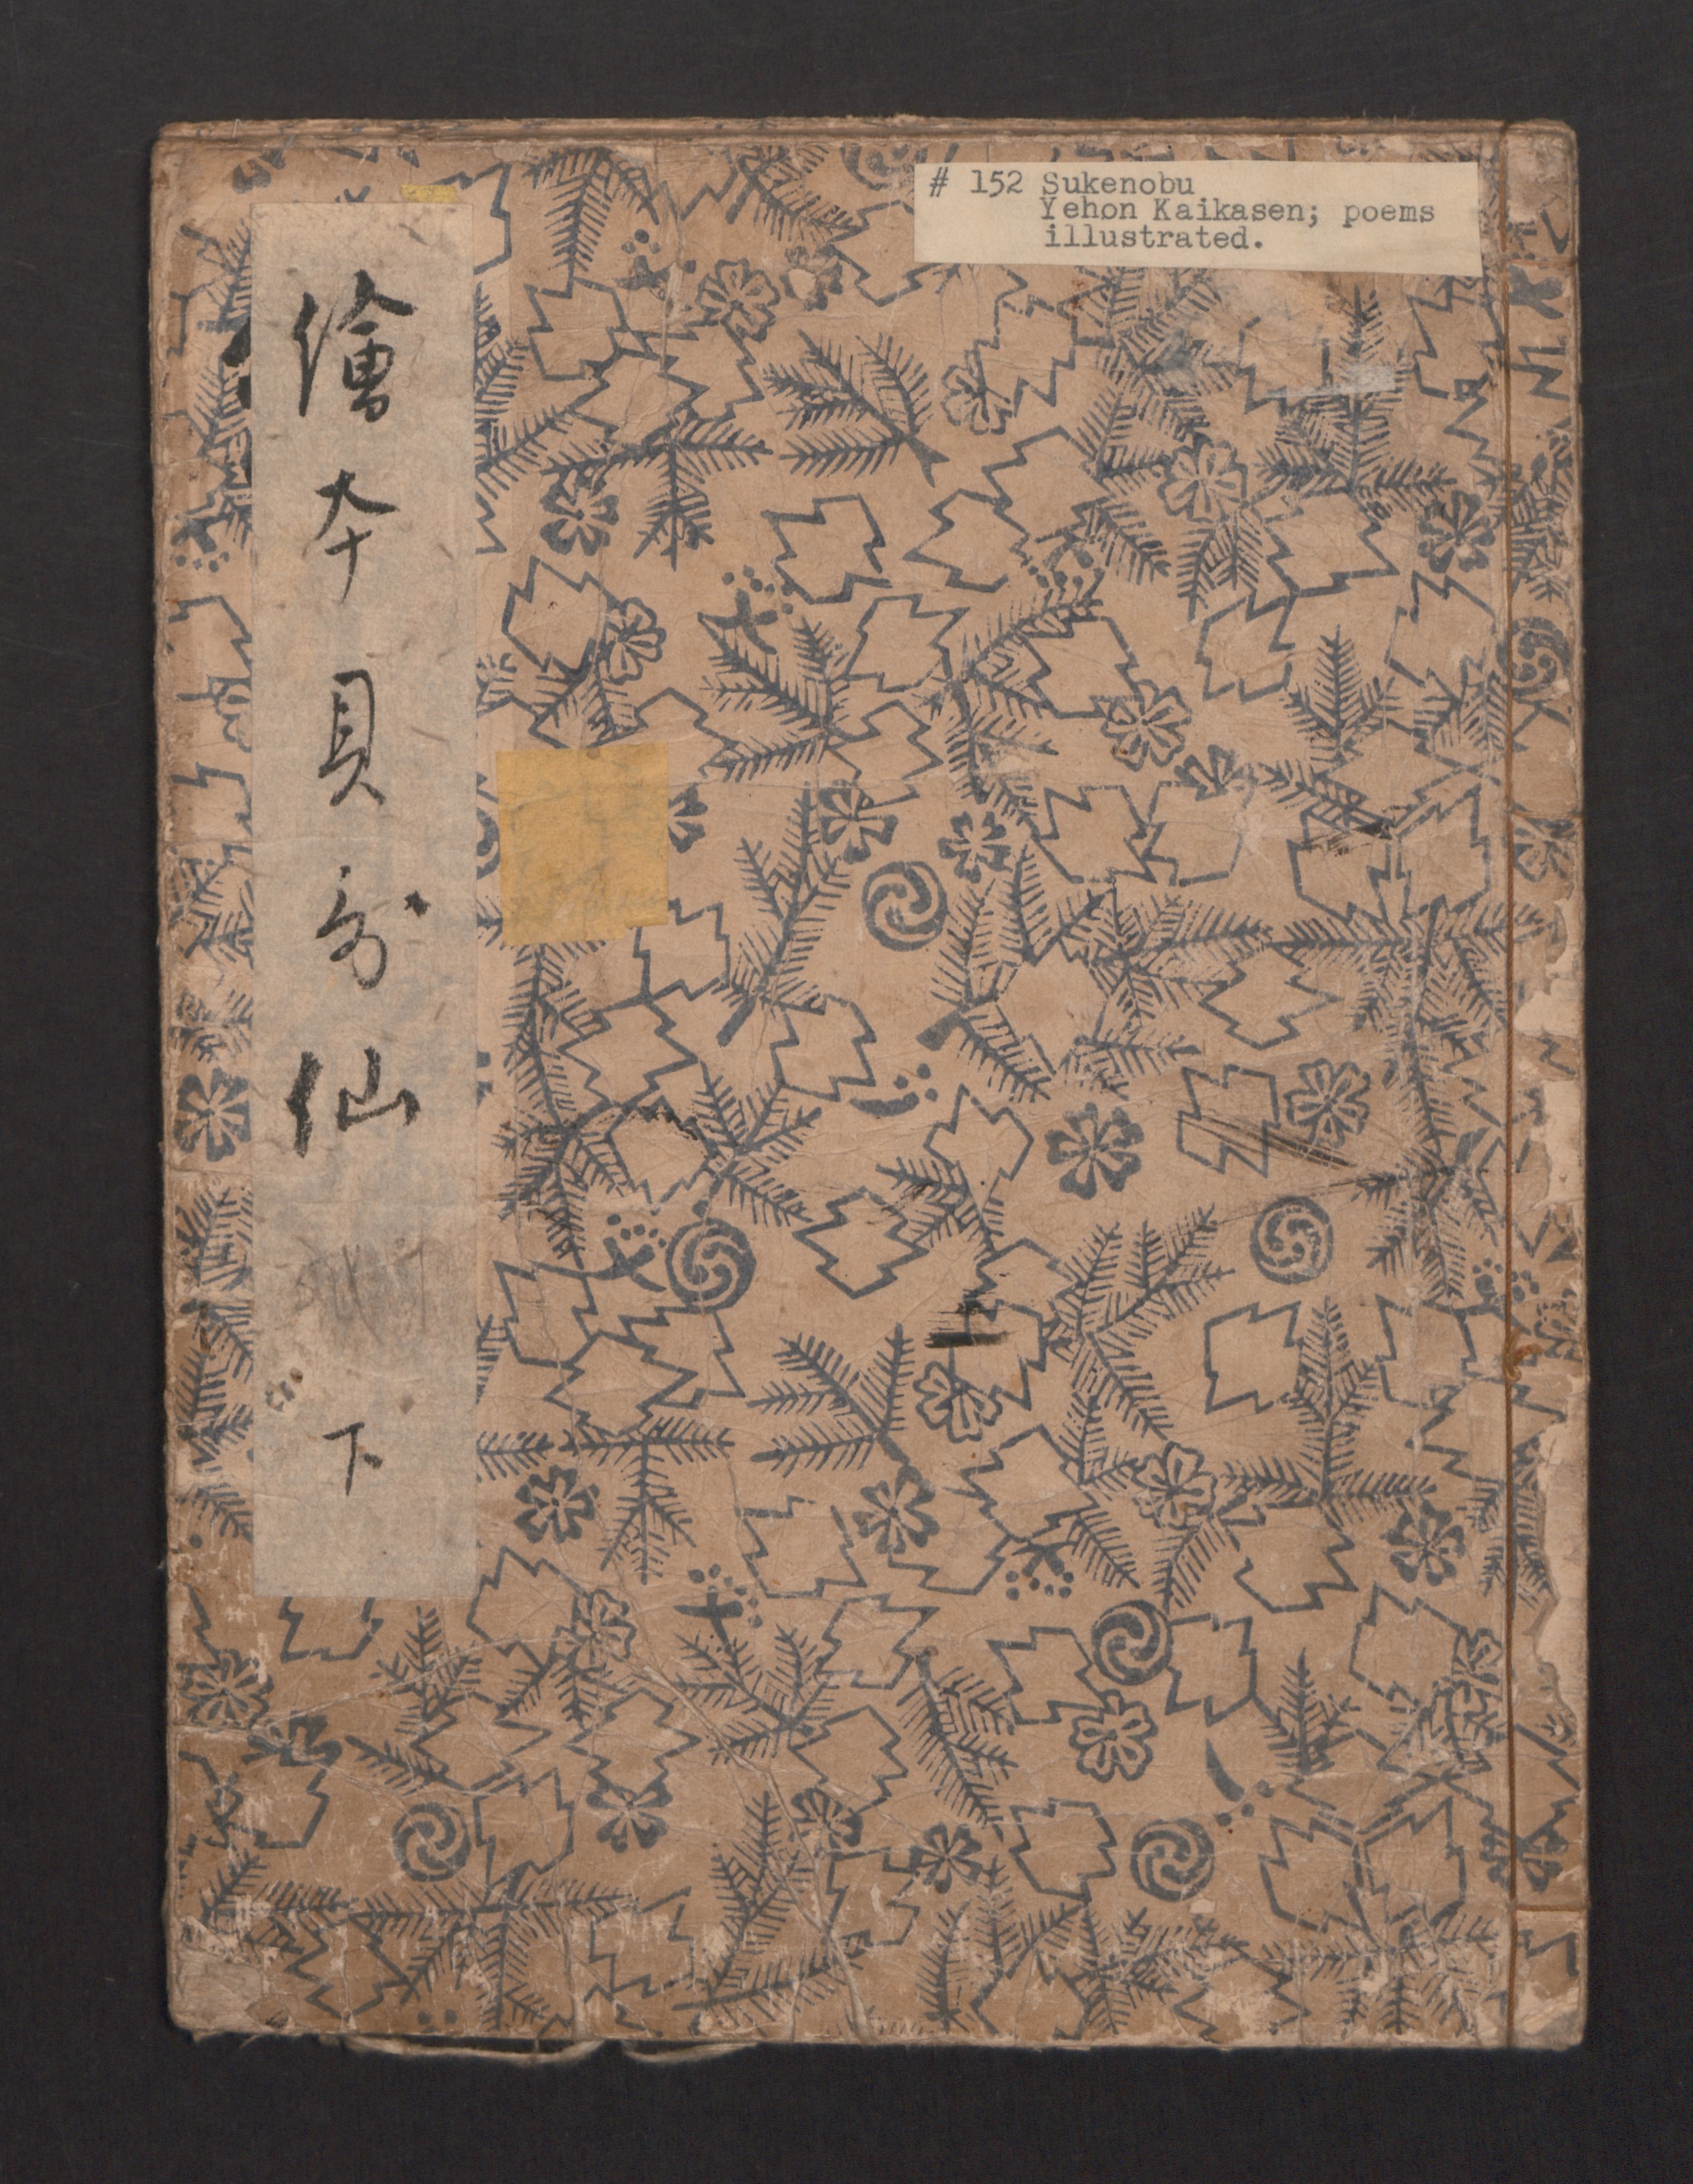 # 152 Sukenobu
Yehon Kaikasen; poems
illustrated.
繪本貝歌仙 下